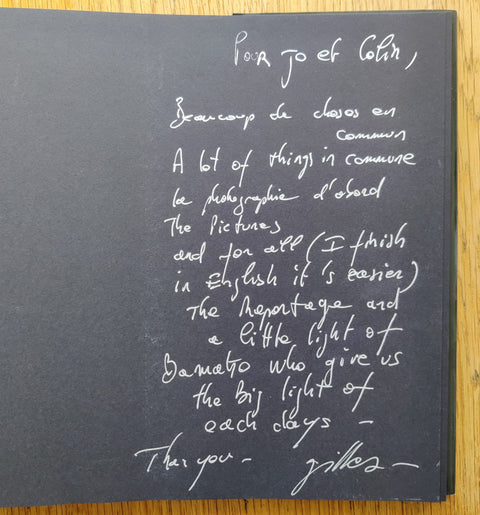 Pour Jo et Colin,
Beaucoup de choses en
commun
A lot of things in commune
la photographie d'abord
The Pictures
and for all (I finish
in English it 's easier)
The Reportage and
a little light of
who give us
the Big light of
each days –
Than you – gilles –